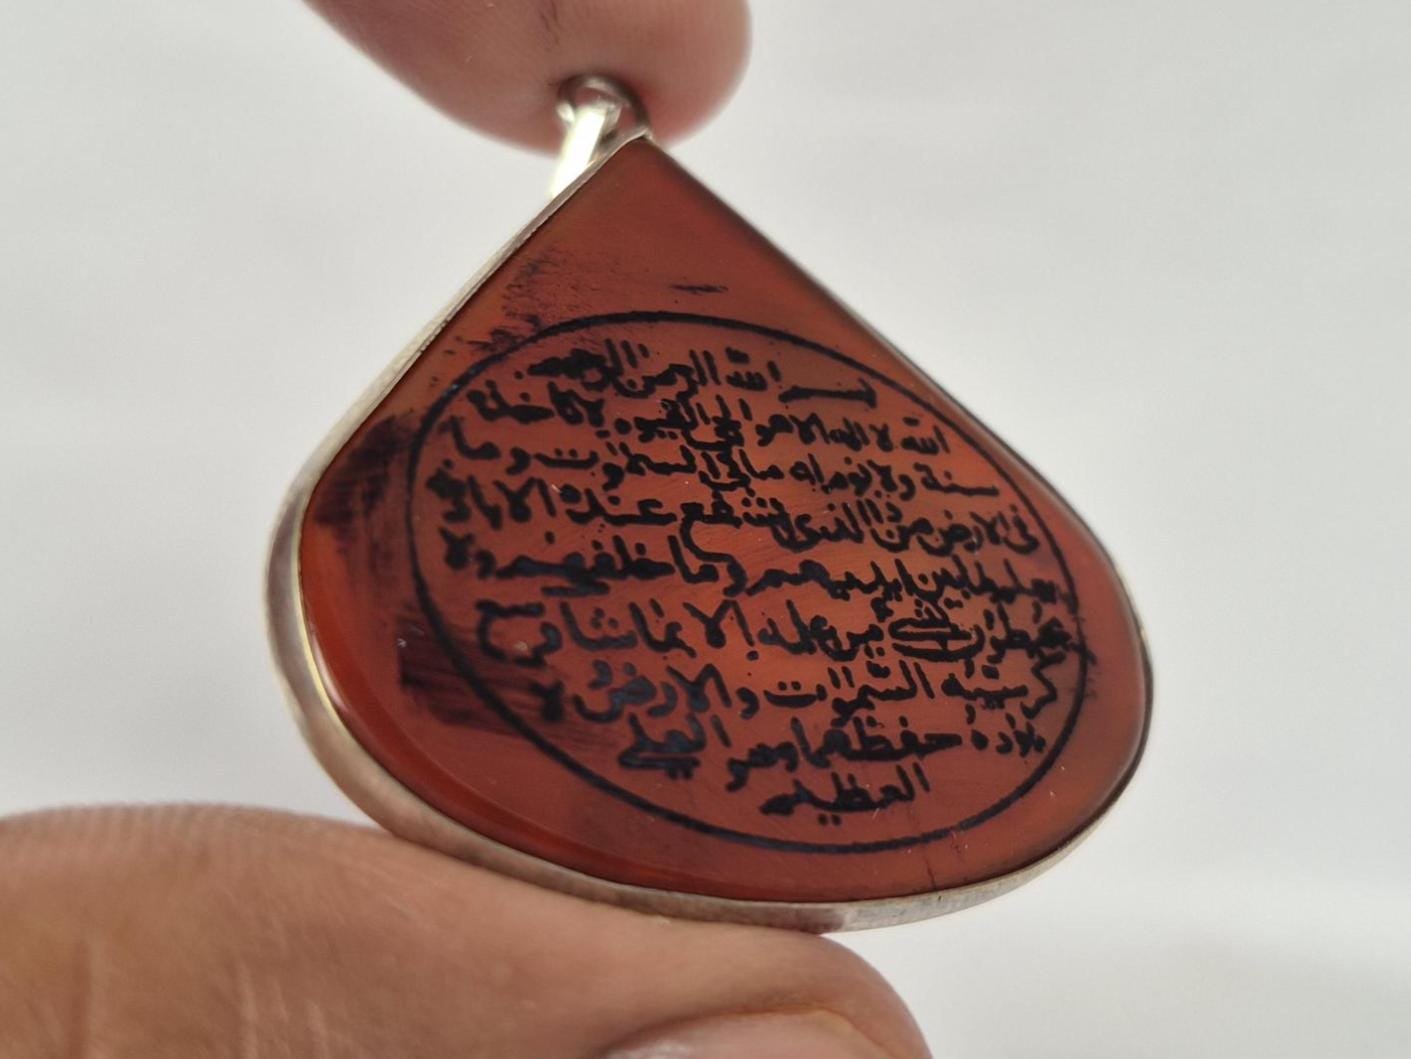 بسم الله الرحمن الرحيم
الله لا اله الا هو الحي القيوم لا تاخذه
سنة ولا نوم له ما في السموات وما
في الارض من ذا الذي يشفع عنده الا باذنه
يعلم ما بين ايديهم وما خلفهم ولا
يحيطون بشي من علمه الا بما شا وسع
كرسيه السموات والارض ولا
يؤده حفظهما وهو العلي
العظيم